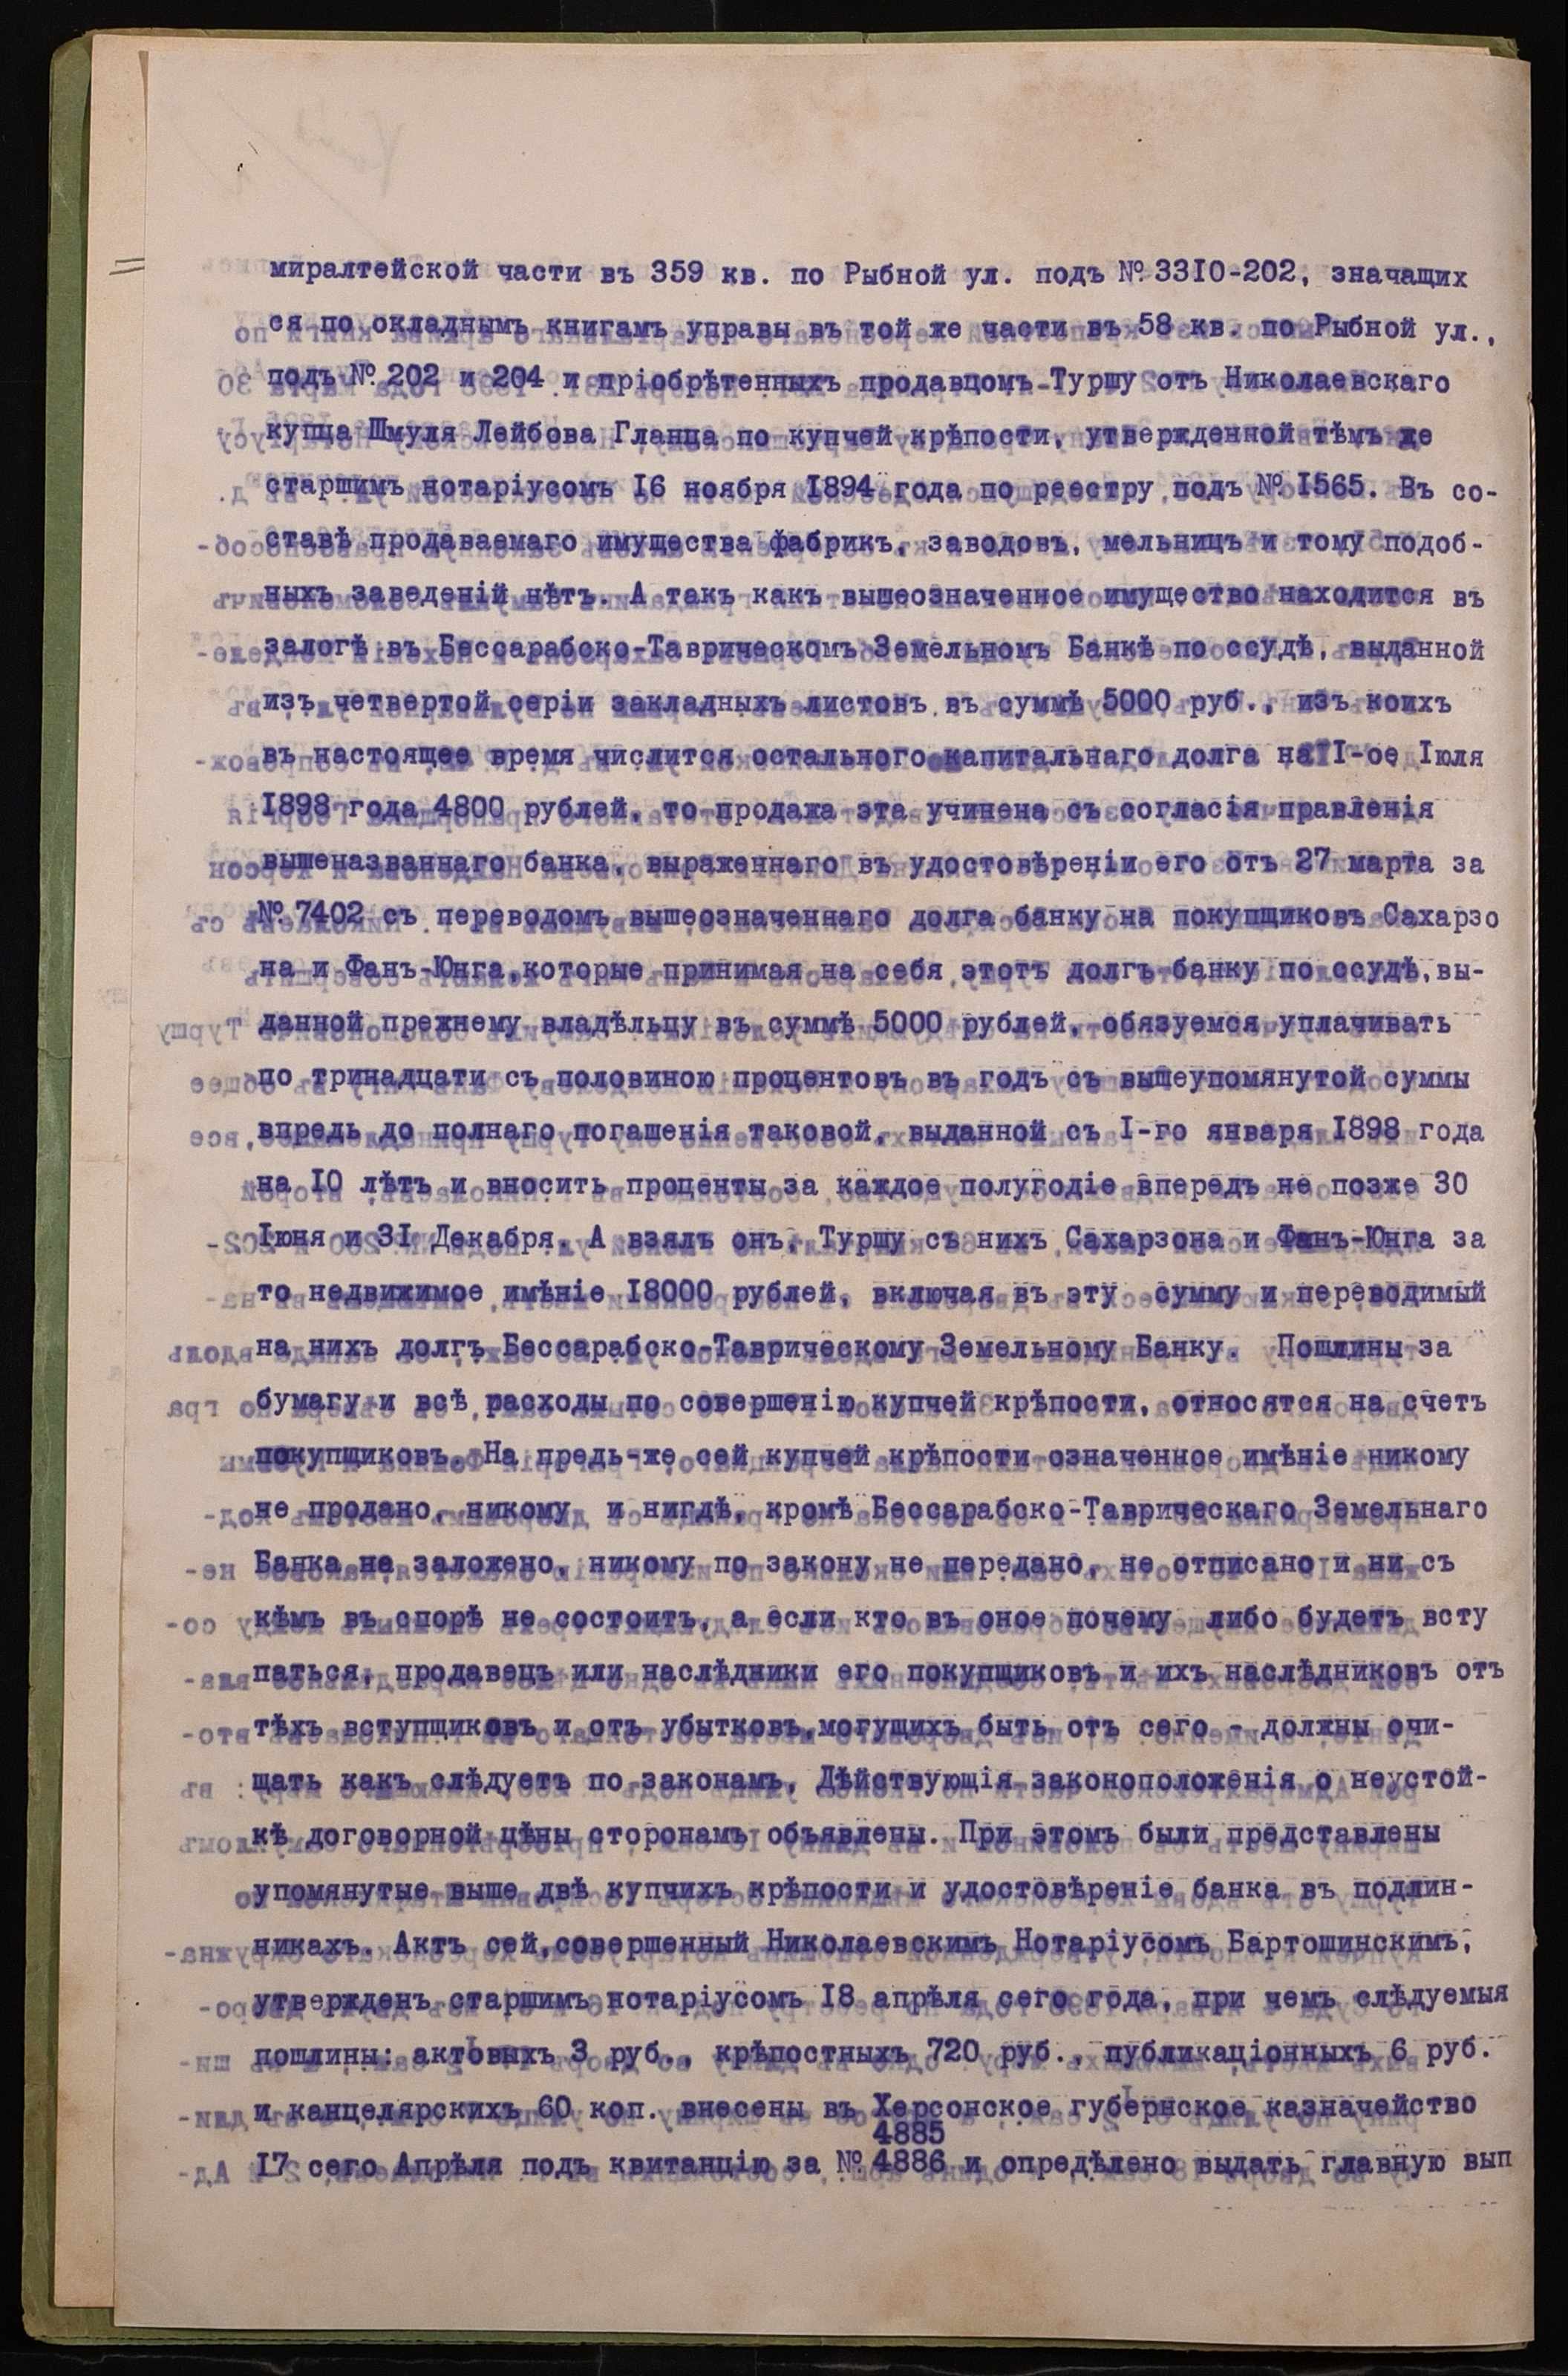 миралтейской части въ 359 кв. по Рыбной ул. подъ № 33I0-202, значащих
ся по окладнымъ книгамъ управы въ той же части въ 58 кв. по Рыбной ул.,
подъ № 202 и 204 и пріобрѣтенныхъ продавцомъ-Туршу отъ Николаевскаго
купца Шмуля Лейбова Гланца по купчей крѣпости, утвержденной тѣмъ же
старшимъ нотаріусомъ I6 ноября I894 года по реестру подъ № I565. Въ со-
ставѣ продаваемаго имущества фабрикъ, заводовъ, мельницъ и тому подоб-
ныхъ заведеній нѣтъ. А такъ какъ вышеозначенное имущество находится въ
залогѣ въ Бессарабско-Таврическомъ Земельномъ Банкѣ по ссудѣ, выданной
изъ четвертой серіи закладныхъ листовъ въ суммѣ 5000 руб., изъ коихъ
въ настоящее время числится остального капитальнаго долга на I-ое Іюля
I898 года 4800 рублей, то продажа эта учинена съ согласія правленія
вышеназваннаго банка, выраженнаго въ удостовѣреніи его отъ 27 марта за
№ 7402 съ переводомъ вышеозначеннаго долга банку на покупщиковъ Сахарзо
на и Фанъ-Юнга,которые принимая на себя этотъ долгъ банку по ссудѣ,вы-
данной прежнему владѣльцу въ суммѣ 5000 рублей, обязуемся уплачивать
по тринадцати съ половиною процентовъ въ годъ съ вышеупомянутой суммы
впредь до полнаго погашенія таковой, выданной съ I-го января I898 года
на I0 лѣтъ и вносить проценты за каждое полугодіе впередъ не позже 30
Іюня и 3I Декабря. А взялъ онъ, Туршу съ нихъ Сахарзона и Фанъ-Юнга за
то недвижимое имѣніе I8000 рублей, включая въ эту сумму и переводимый
на нихъ долгъ Бессарабско-Таврическому Земельному Банку. Пошлины за
бумагу и всѣ расходы по совершенію купчей крѣпости, относятся на счетъ
покупщиковъ. На предь-же сей купчей крѣпости означенное имѣніе никому
не продано, никому и нигдѣ, кромѣ Бессарабско-Таврическаго Земельнаго
Банка не заложено, никому по закону не передано, не отписано и ни съ
кѣмъ въ спорѣ не состоитъ, а если кто въ оное почему либо будетъ всту
паться, продавецъ или наслѣдники его покупщиковъ и ихъ наслѣдниковъ отъ
тѣхъ вступщиковъ и отъ убытковъ,могущихъ быть отъ сего - должны очи-
щать какъ слѣдуетъ по законамъ. Дѣйствующія законоположенія о неустой-
кѣ договорной цѣны сторонамъ объявлены. При этомъ были представлены
упомянутые выше двѣ купчихъ крѣпости и удостовѣреніе банка въ подлин-
никахъ. Актъ сей,совершенный Николаевскимъ Нотаріусомъ Бартошинскимъ,
утвержденъ старшимъ нотаріусомъ I8 апрѣля сего года, при чемъ слѣдуемыя
пошлины: актовыхъ 3 руб., крѣпостныхъ 720 руб., публикаціонныхъ 6 руб.
и канцелярскихъ 60 коп. внесены въ Херсонское губернское казначейство
4885
I7 сего Апрѣля подъ квитанцію за № 4886 и опредѣлено выдать главную вып